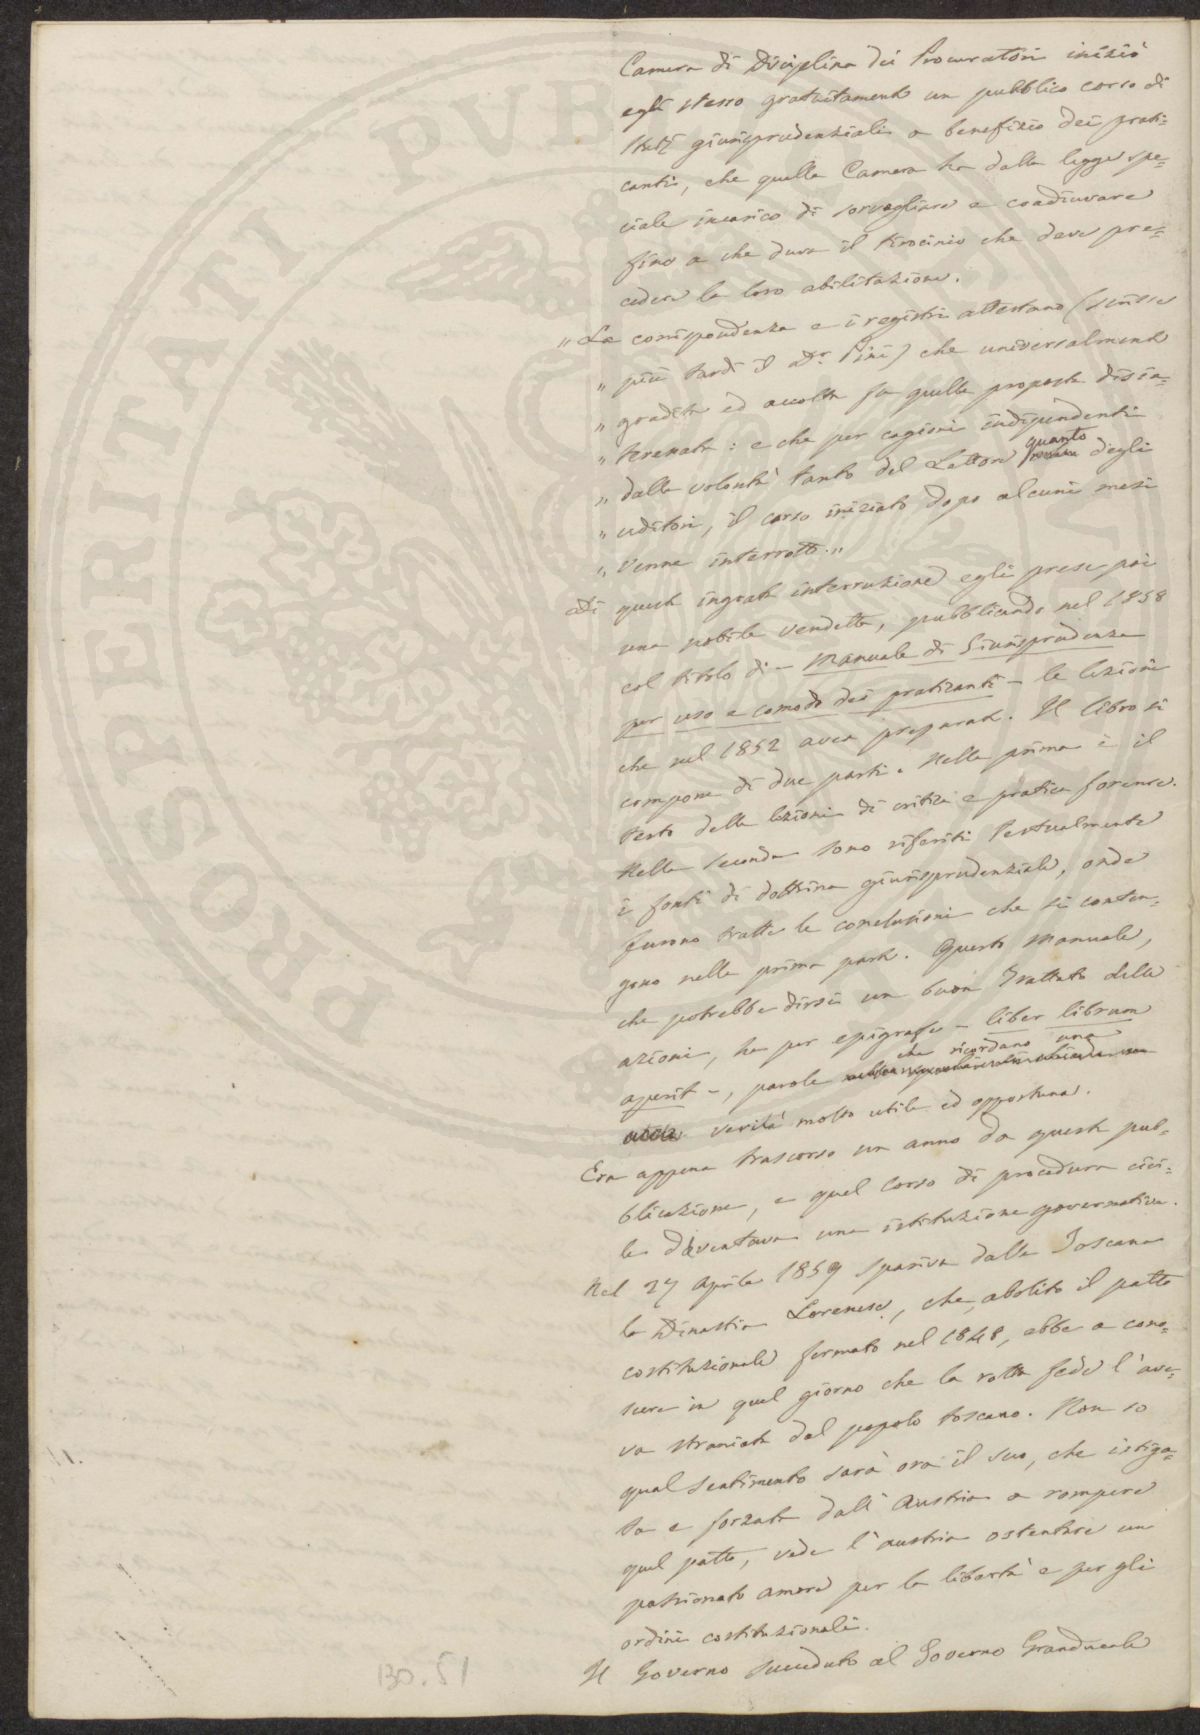 Camera di Disciplina dei Procuratori iniziò
egli stesso gratuitamente un pubblico corso di
studi giurisprudenziali a benefizio dei prati=
canti, che quella Camera ha dalla legge spe=
ciale incarico di sorvegliare e coadiuvare
fino a che dura il tirocinio che deve pre=
cedere la loro abilitazione.
„ La corrispondenza e i registri attestano (scrisse
„ più tardi il Dr. Pini) che universalmente
„ gradita ed accolta fu quella proposta disin=
„ teressata: e che per cagioni indipendenti
„ dalla volontà tanto del Lettore quanto degli
„ uditori, il corso iniziato dopo alcuni mesi
„ venne interrotto.„
Di questa ingrata interruzione egli prese poi
una nobile vendetta, pubblicando nel 1858
col titolo di - Manuale di Giurisprudenza
per uso e comodo dei praticanti - le lezioni
che nel 1852 avea preparate. Il libro si
compone di due parti. Nella prima è il
testo delle lezioni di critica e pratica forense.
Nella seconda sono riferiti testualmente
i fonti di dottrina giurisprudenziale, onde
furono tratte le conclusioni che si conten=
gono nella prima parte. Questo Manuale,
che potrebbe dirsi un buon Trattato delle
azioni, ha per epigrafe - liber librum
aperit -, parole che ricordano una
verità molto utile ed opportuna.
Era appena trascorso un anno da questa pub=
blicazione, e quel corso di procedura civi=
le diventava una istituzione governativa.
Nel 27 Aprile 1859 spariva dalla Toscana
la Dinastia Lorenese, che, abolito il patto
costituzionale fermato nel 1848, ebbe a cono=
scere in quel giorno che la rotta fede l'ave=
va straniata dal popolo toscano. Non so
qual sentimento sarà ora il suo, che istiga=
ta e forzata dall'Austria a rompere
quel patto, vede l'Austria ostentare un
passionato amore per la libertà e per gli
ordini costituzionali.
Il Governo succeduto al Governo Granducale
130.51
PROSPERITATI PVB